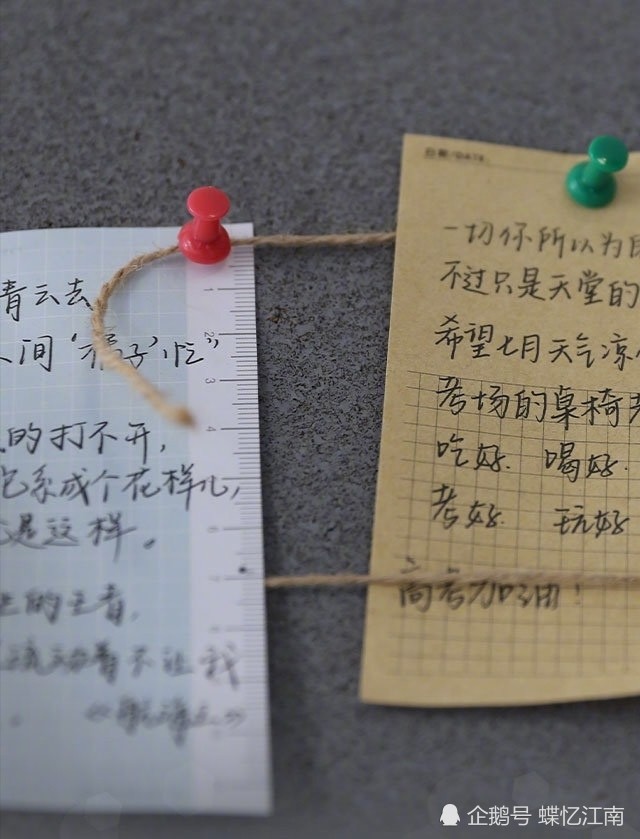 青云去
人间
的打不开，
它系成个花样儿，
还是这样。
的主音，
流动着不让我
日期/DATE:
一切你所以为
不过只是天堂的
希望七月天气凉
考场的桌椅
吃好. 喝好.
考好. 玩好
高考加油！
1
2
3
4
企鹅号 蝶忆江南